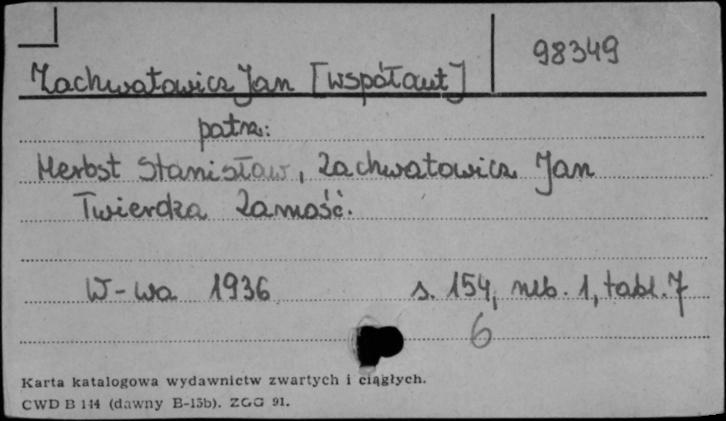 98349
Zachwatowicz Jan [współaut]
patrz:
Herbst Stanisław, Zachwatowicz Jan
Twierdza Zamość.
W-wa 1936 s. 154, nlb. 1, tabl. 7
6
Karta katalogowa wydawnictw zwartych i ciągłych.
CWD B 144 (dawny B-15b). ZGG 91.